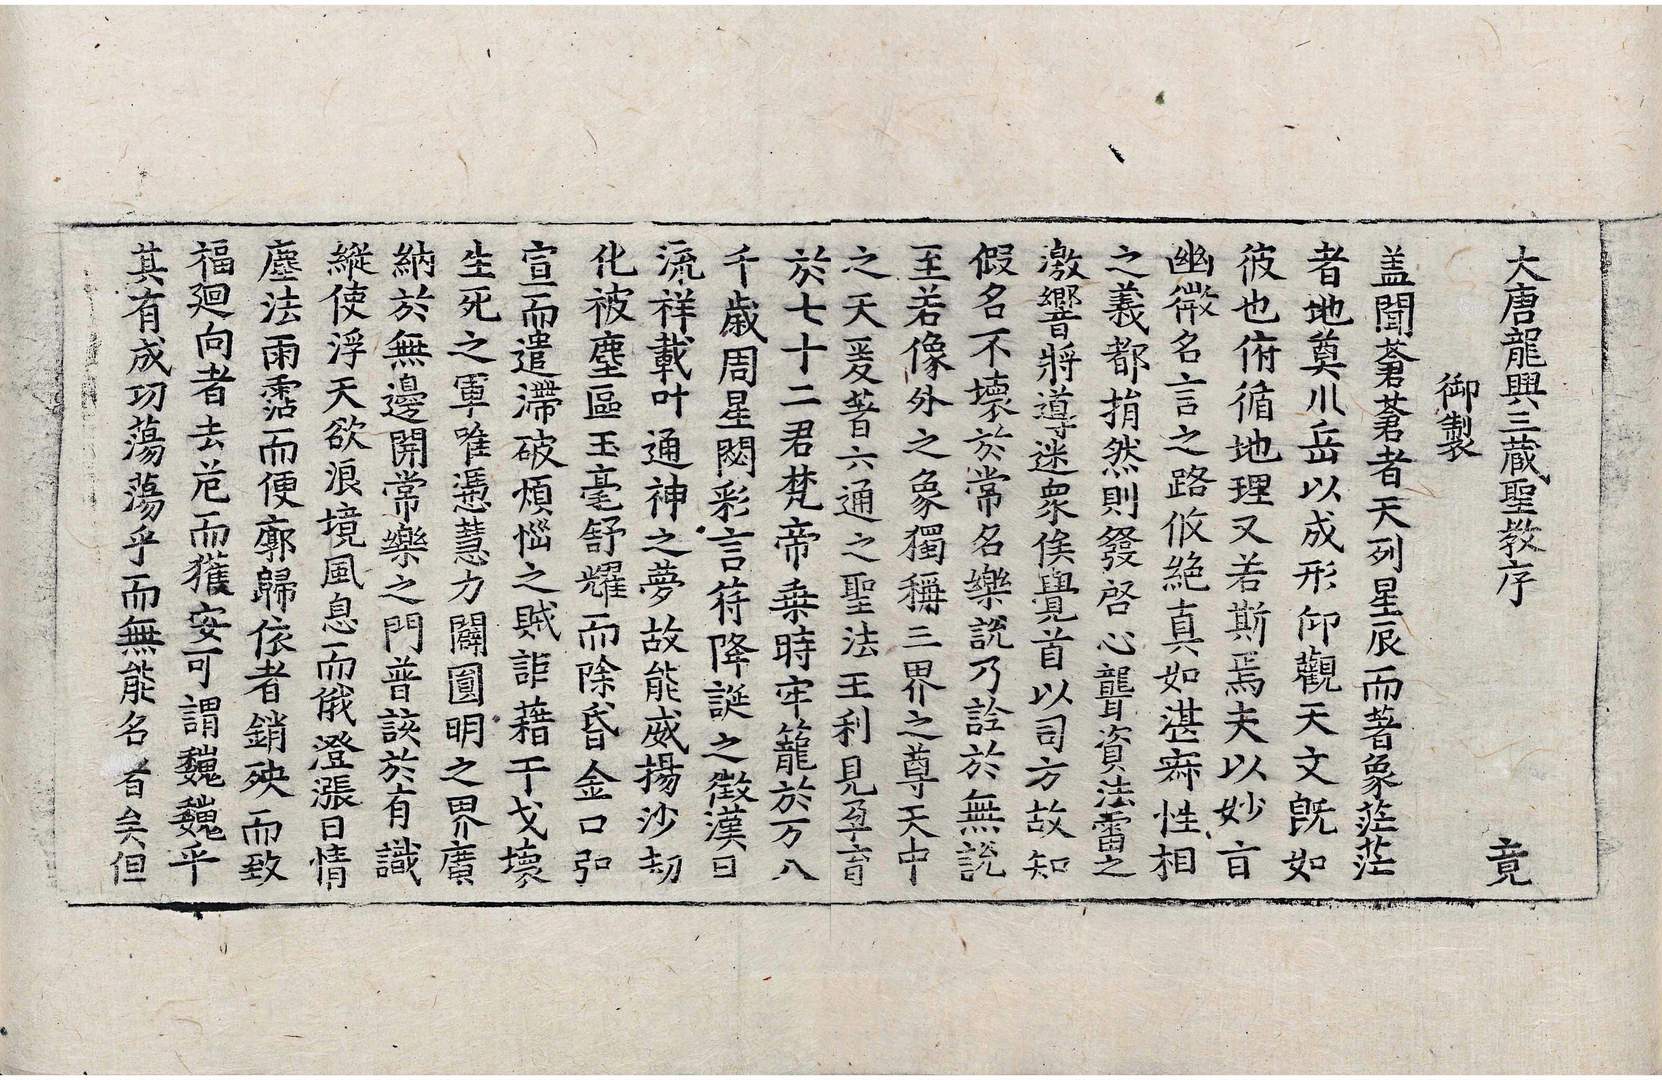 大唐龍興三藏聖教序　竟
御製
盖聞蒼蒼者天列星辰而著象茫茫
者地奠川岳以成形仰觀天文旣如
彼也俯循地理又若斯焉夫以妙言
幽微名言之路攸絶真如湛寂性相
之義都捐然則發啓心聾資法雷之
激響將導迷衆俟覺首以司方故知
假名不壞於常名樂說乃詮於無說
至若像外之象獨稱三界之尊天中
之天爰著六通之聖法王利見孕育
於七十二君梵帝乗時牢籠於万八
千歲周星閟彩言符降誕之徵漢日
流祥載叶通神之夢故能威揚沙刼
化被塵區玉毫舒耀而除昏金口弘
宣而遣滯破煩惱之賊詎藉干戈壞
生死之軍唯憑慧力闢圎明之界廣
納於無邊開常樂之門普該於有識
縱使浮天欲浪境風息而俄澄漲日情
塵法雨霑而便廓歸依者銷殃而致
福廻向者去危而獲安可謂巍巍乎
其有成功蕩蕩乎而無能名者矣但